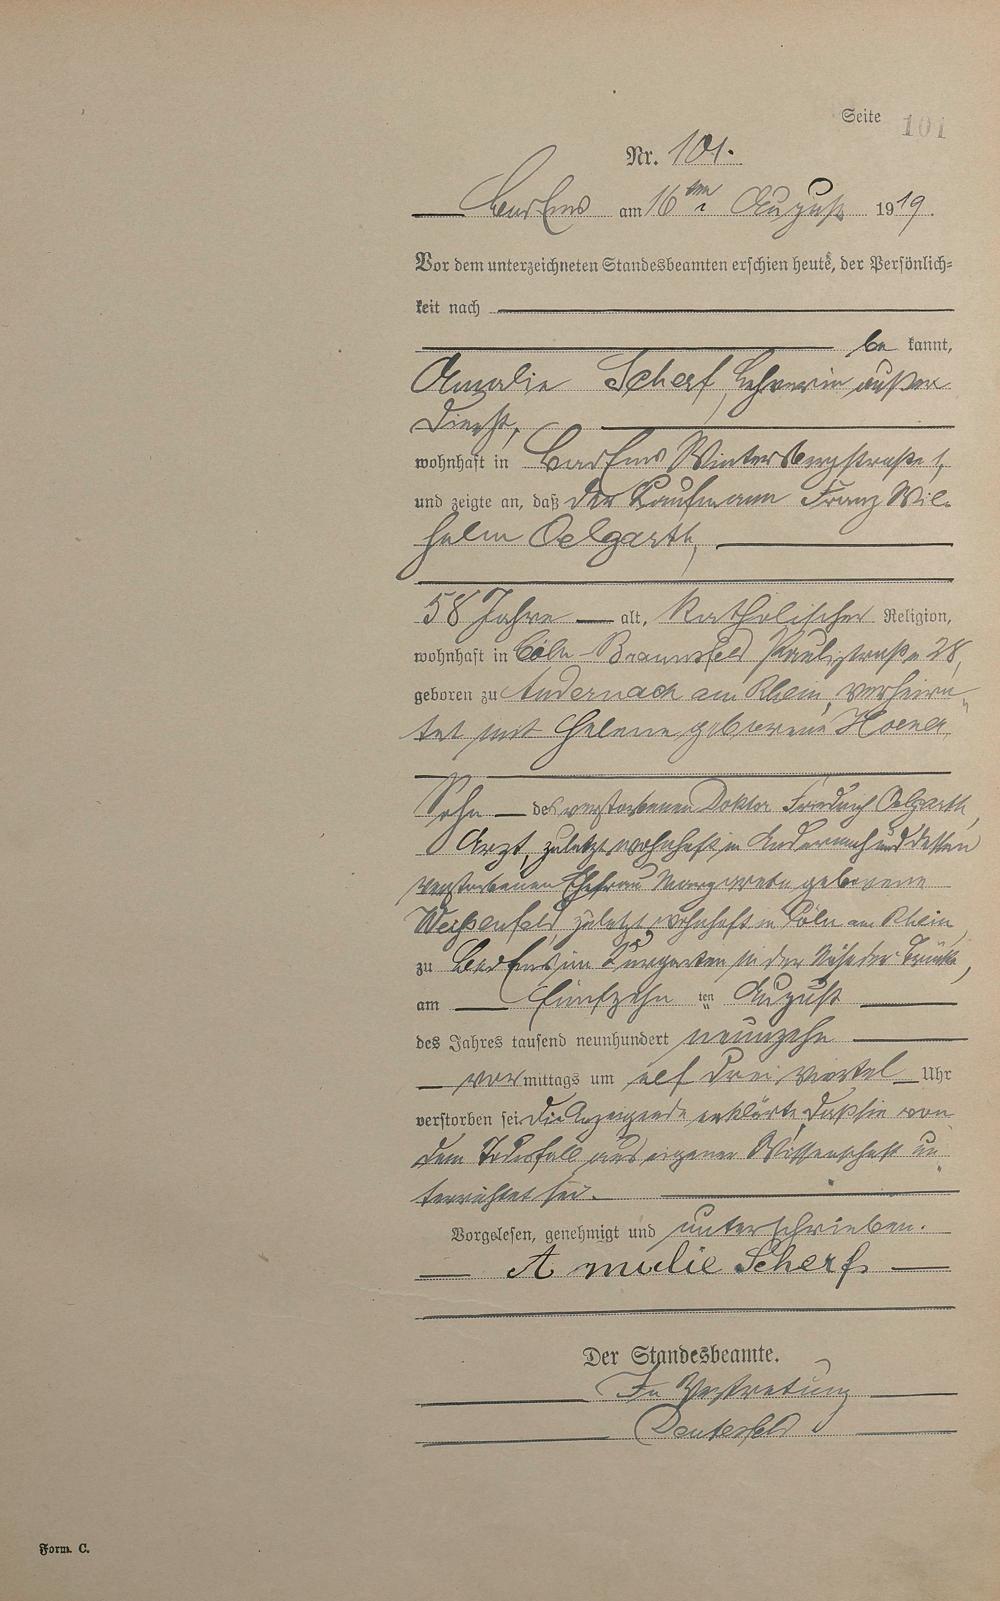 Seite 101
Nr. 101.
Bad Ems am 16ten August 1919.
Vor dem unterzeichneten Standesbeamten erschien heute, der Persönlich-
keit nach
be kannt,
Amalie Scherf, Lehrerin außer
Dienst,
wohnhaft in Bad Ems Wintersbergstraße 1,
und zeigte an, daß der Kaufmann Franz Wil-
helm Oelgarth,
58 Jahre alt, Katholischer Religion,
wohnhaft in Cöln-Braunsfeld Paulistraße 28,
geboren zu Andernach am Rhein, verheira-
tet mit Helene geborene
Sohn des verstorbenen Doktor Friedrich Oelgarth,
Arzt, zuletzt wohnhaft in Andernach und dessen
verstorbenen Ehefrau Margareta geborene
Weißenfeld, zuletzt wohnhaft in Cöln am Rhein,
zu Bad Ems im Kurgarten in der Nähe der Brücke,
am fünfzehn ten August
des Jahres tausend neunhundert neunzehn
vormittags um elf drei viertel Uhr
verstorben sei. Die Anzeigende erklärte, daß sie von
dem Todesfall aus eigener Wissenschaft un-
terrichtet sei.
Vorgelesen, genehmigt und unterschrieben.
Amalie Scherf
Der Standesbeamte.
In Vertretung
Form. C.